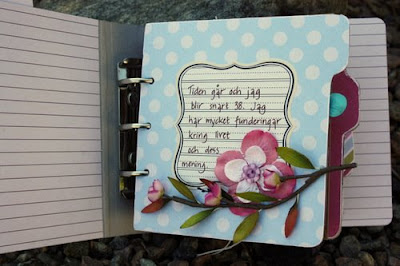 Tiden går och jag
blir snart 38. Jag
har mycket funderingar
kring livet
och dess
mening.